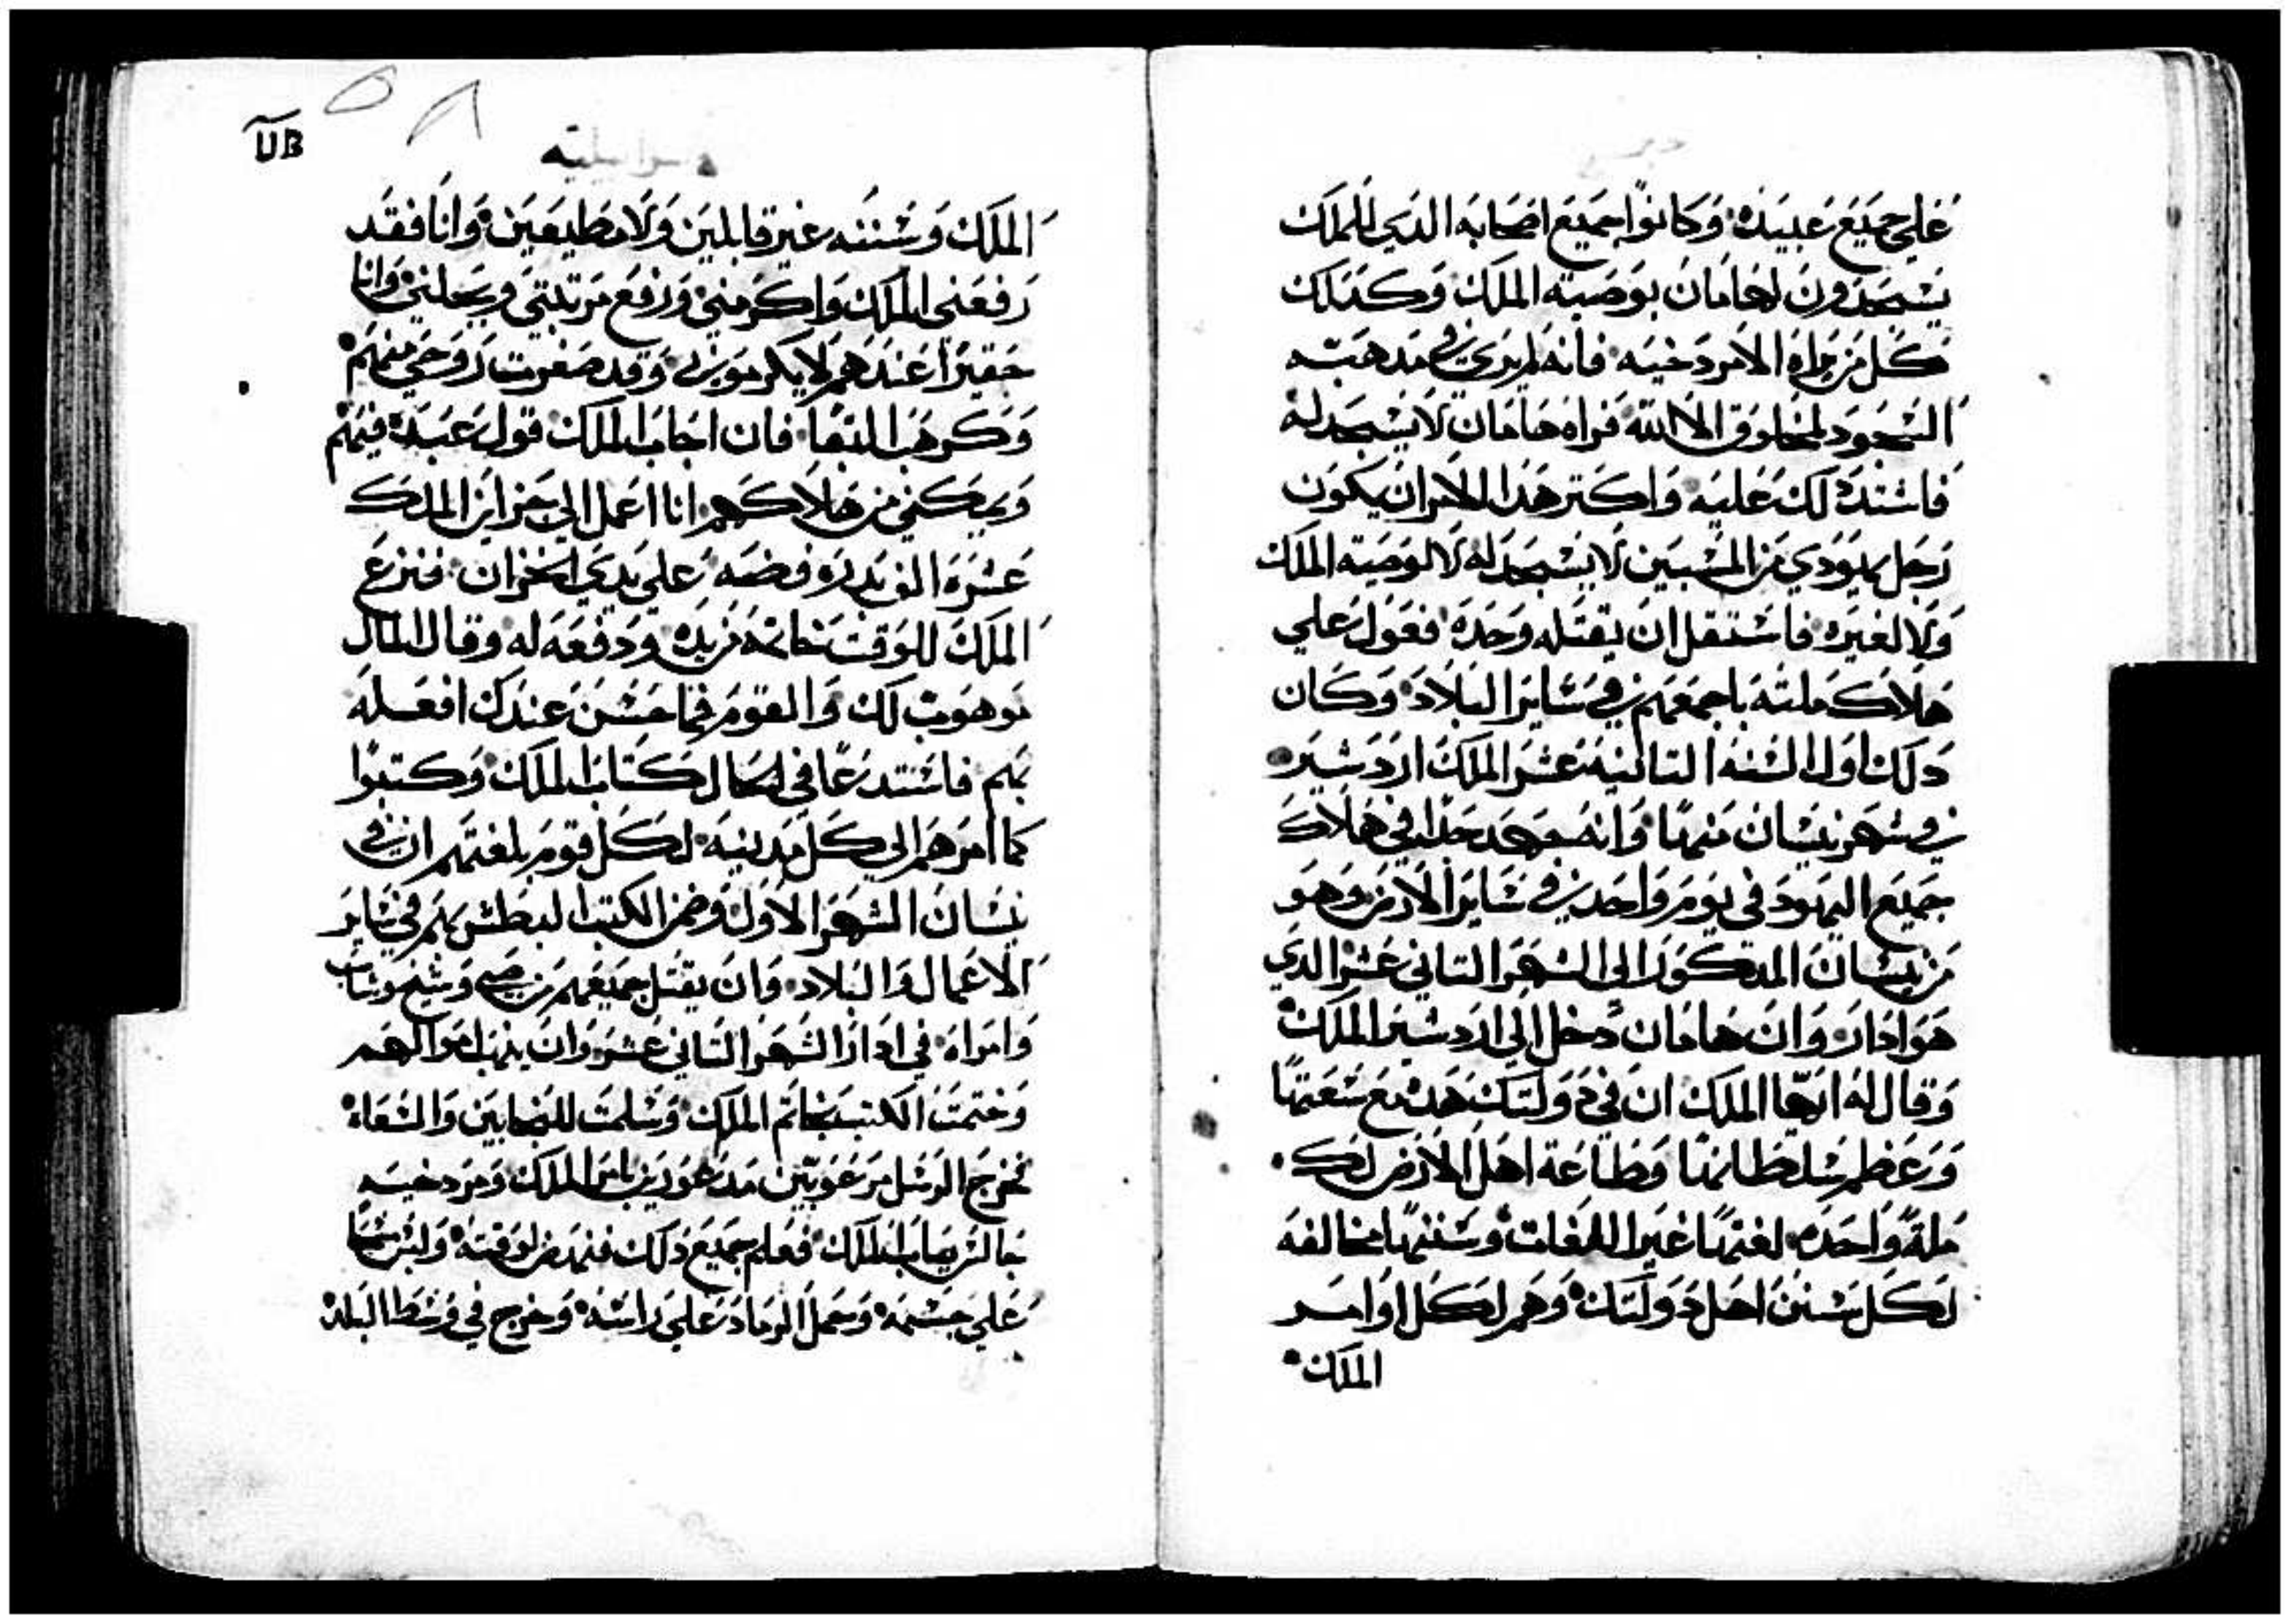 علي جميع عبيده وكانوا جميع اصحابه الدي للملك
يسجدون لهامان بوصية الملك وكدلك
كل من يراه الامردخيه فانه لم يري في مدهبه
السجود لمخلوق الا الله فراه هامان لا يسجد له
فاشتد دلك عليه واكتر هدا الامر ان يكون
رجل يهودي من المسبيين لا يسجد له لا لوصية الملك
ولا لغيره فاستقل ان يقتله وحده فعول علي
هلاك ملته باجمعهم في ساير البلاد وكان
دلك اول السنه التانيه عشر الملك اردشير
في شهر نيسان منها وانه جهد جدا في هلاك
جميع اليهود في يوم واحد في ساير الارض وهو
من نيسان المدكور الى الشهر التاني عشر الدي
هو ادار وان هامان دخل الي اردشير الملك
وقال له ايها الملك ان في دولتك هده مع سعتها
وعظم سلطانها وطاعة اهل الارض لك
ملة واحده لغتها غير اللغات وسننها مخالفه
لكل سنن اهل دولتك وهم لكل اوامر
الملك
UB
٥٨
الملك وسننه غير قابلين ولا مطيعين وانا فقد
رفعني الملك واكرمني ورفع مرتبتي وبجلني وانا
حقيرا عندهم لا يكرموني وقد صغرت روحي منهم
وكرهت البقا فان اجاب الملك قول عبده فيهم
ويمكني من هلاكهم انا اعمل الي خزاين الملك
عشرة الف بدره فضه علي يدي الخزان فنزع
الملك للوقت خاتمه من يده ودفعه له وقال المال
موهوب لك والقوم فما حسن عندك افعله
بهم فاستدعا في الحال كتاب الملك وكتبوا
كما امرهم الي كل مدينه لكل قوم بلغتهم ان في
نيسان الشهر الاول وضمن الكتب البطش بهم في ساير
الاعمال والبلاد وان يقتل جميعهم من صبي وشيخ وشاب
وامراه في ادار الشهر التاني عشر وان ينهب اموالهم
وختمت الكتب بخاتم الملك وسلمت للنجابين والسعاه
فخرج الرسل مرعوبين مدعورين بامر الملك ومردخيه
جالس بباب الملك فعلم جميع دلك فنهض لوقته ولبس مسحا
علي جسمه وحمل الرماد علي راسه وخرج في وسط البلد